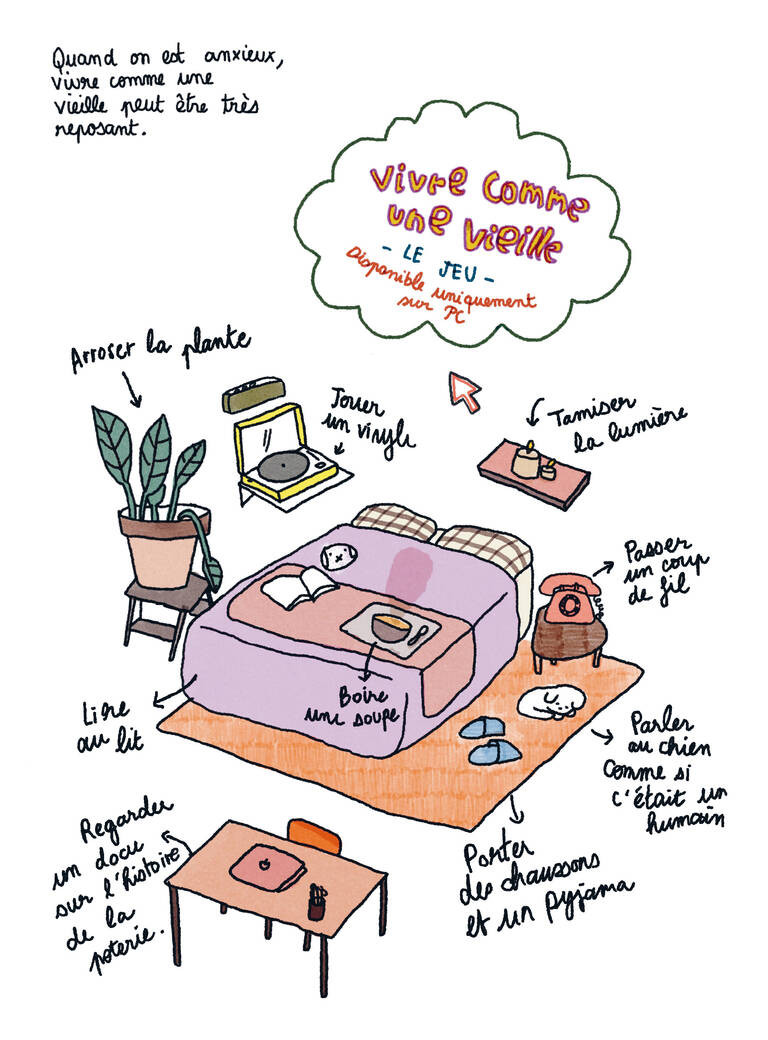 Quand on est anxieux,
vivre comme une
vieille peut être très
reposant.
Vivre comme
une vieille
- LE JEU -
Disponible uniquement
sur PC
Arroser la plante
Jouer
un vinyle
Tamiser
la lumière
Passer
un coup
de fil
Lire
au lit
Boire
une soupe
Parler
au chien
comme si
c'était un
humain
Regarder
un docu
sur l'histoire
de la
poterie.
Porter
des chaussons
et un pyjama